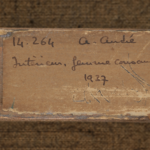 14.264 A. André
Intérieur, femme cousant
1927